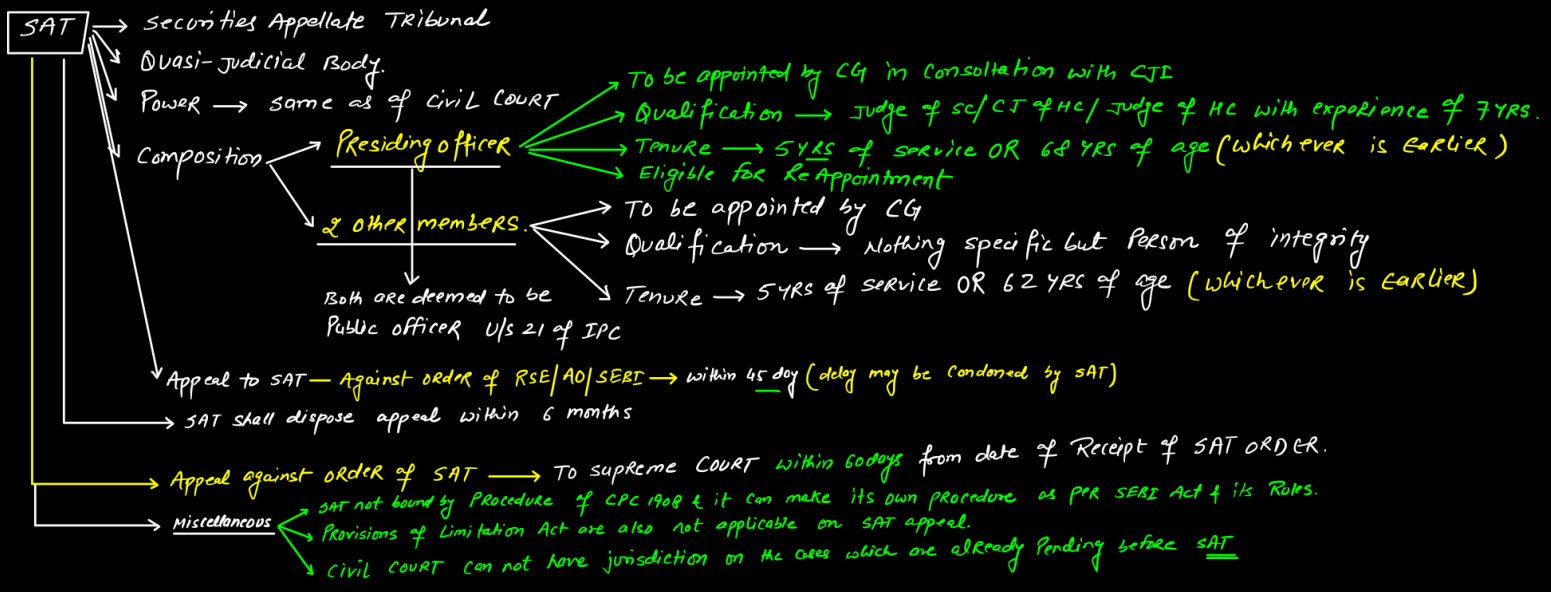 SAT → Securities Appellate Tribunal
Quasi-Judicial Body.
Power → same as of Civil Court
Composition
Presiding officer
To be appointed by CG in Consultation with CJI
Qualification → Judge of SC/CJ of HC/Judge of HC with experience of 7 YRS.
Tenure → 5 YRS of service OR 68 YRS of age (whichever is Earlier)
Eligible for ReAppointment
2 other members.
To be appointed by CG
Qualification → Nothing specific but Person of integrity
Tenure → 5 YRS of service OR 62 YRS of age (whichever is Earlier)
Both are deemed to be
Public officer U/s 21 of IPC
Appeal to SAT — Against order of RSE/AO/SEBI → within 45 day (delay may be condoned by SAT)
SAT shall dispose appeal within 6 months
Appeal against order of SAT → To Supreme Court within 60 days from date of Receipt of SAT ORDER.
Miscellaneous
SAT not bound by Procedure of CPC 1908 & it can make its own procedure as per SEBI Act & its Rules.
Provisions of Limitation Act are also not applicable on SAT appeal.
Civil Court can not have jurisdiction on the cases which are already Pending before SAT